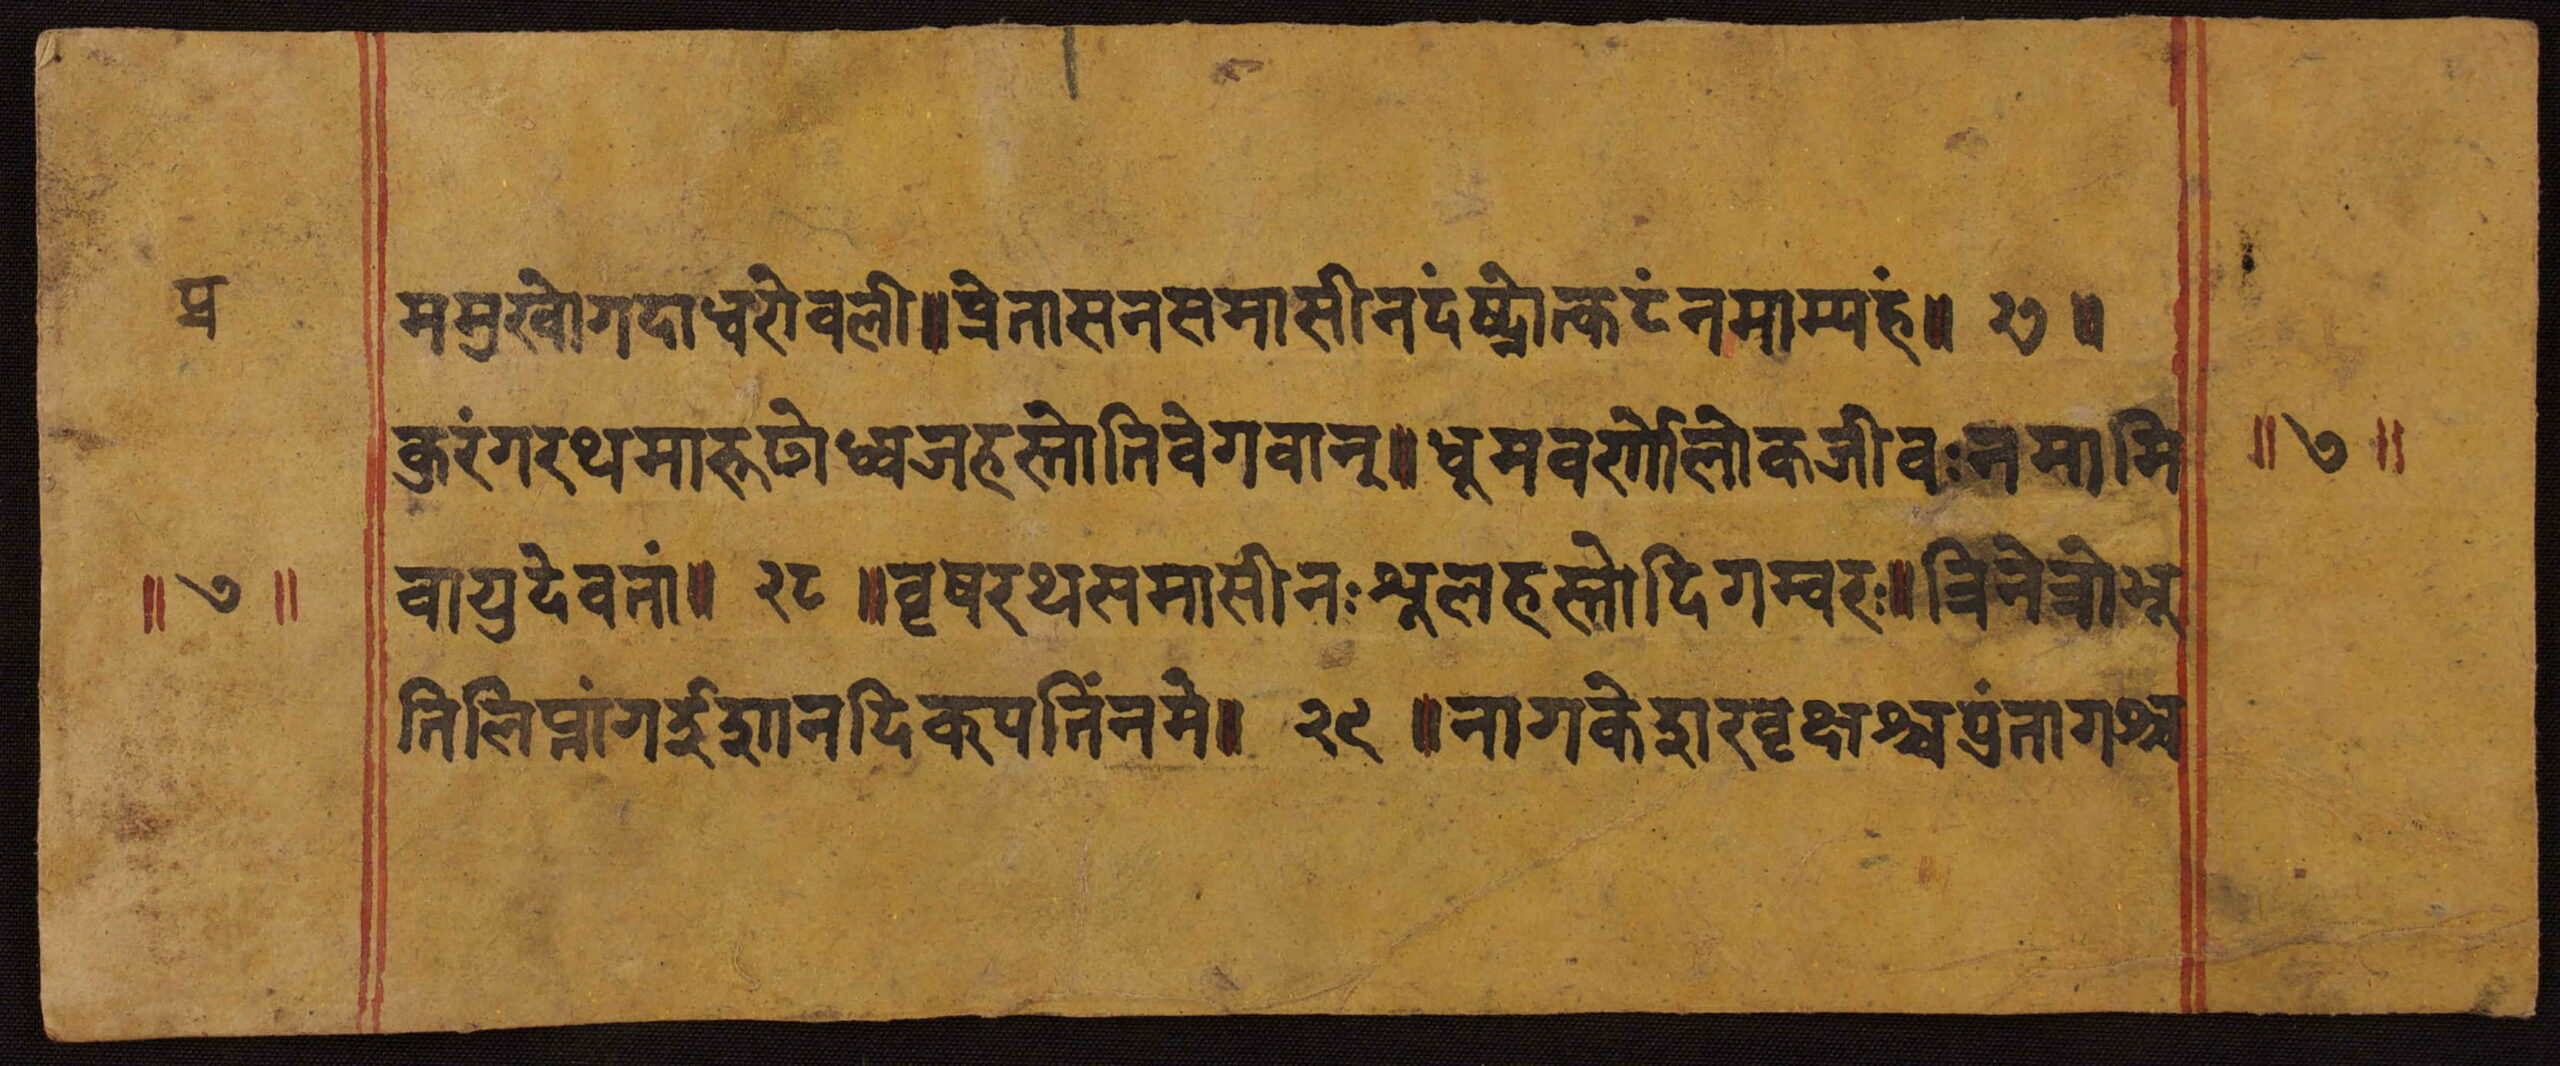 प्र
ममुखोगदाधरोवली॥प्रेतासनसमासीनदंष्ट्रोत्कटंनमाम्यहं॥ २७ ॥
कुरंगरथमारुढोध्वजहस्तोतिवेगवान्॥धूमवर्णोलोकजीवःनमामि
॥ ७ ॥
वायुदेवतां॥ २८ ॥वृषरथसमासीनःशूलहस्तोदिगम्वरः॥त्रिनेत्रोभू
॥ ७ ॥
तिलिप्तांगईशानदिकपतिंनमे॥ २९ ॥नागकेशरवृक्षश्चपुंनागश्च